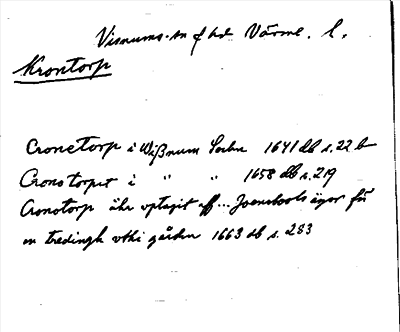 Visnums sn f hd Värml. l.
Krontorp
Cronetorp i Wißnum Sochn 1641 db s. 22 b
Cronstorpet i " " 1658 db s. 219
Cronotorp ähr uptagit aff... ägor för
en tredingh uthi gården 1663 db s. 283